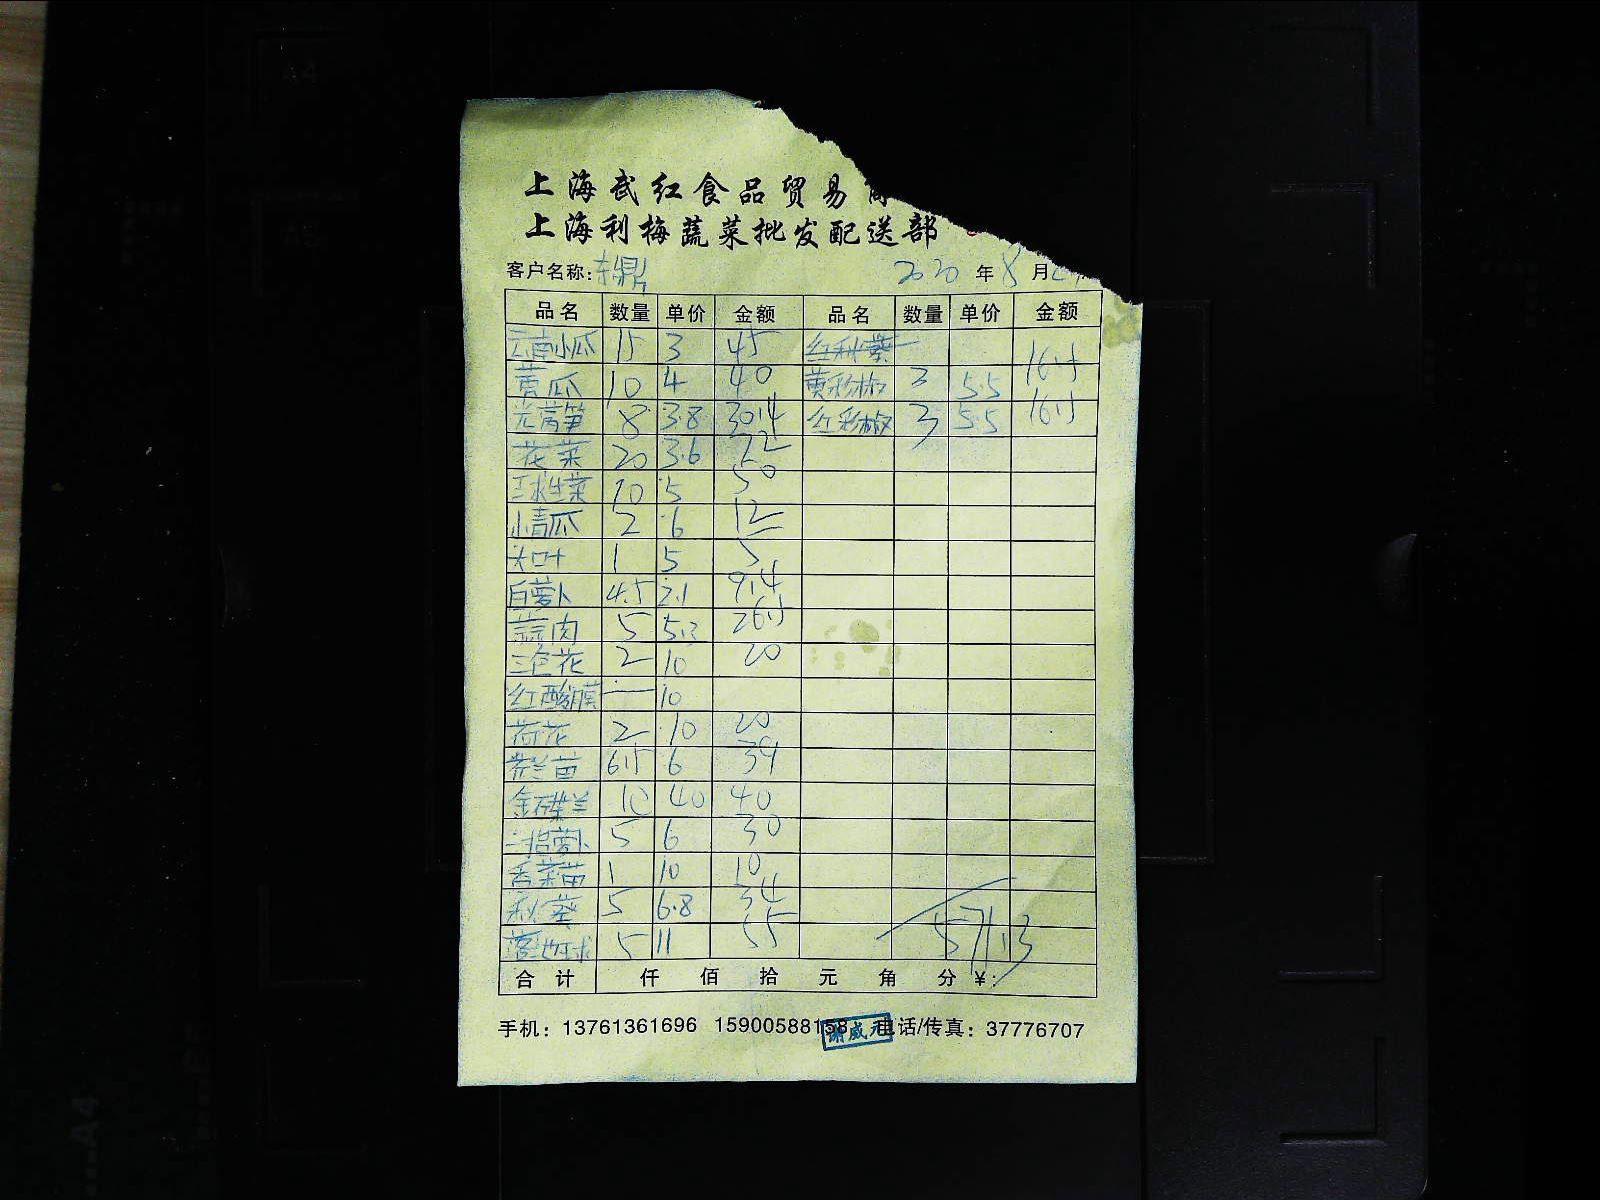 上海武红食品贸易
上海利梅蔬菜批发配送部
客户名称: 鼎 2020 年 8 月
品名 数量 单价 金额 品名 数量 单价 金额
云南小瓜 15 3 45 红秋葵
黄瓜 10 4 40 黄彩椒 3 5.5 16.5
光莴笋 8 3.8 30.4 红彩椒 3 5.5 16.5
花菜 20 3.6 72
球生菜 10 5 50
小青瓜 2 6 12
大叶 1 5 5
白萝卜 4.5 2.1 9.4
蒜肉 5 5.3 26.5
三色花 2 10 20
红酸膜 一 10
荷花 2 10 20
芥兰苗 6.5 6 39
金碟兰 10 40 40
萝卜 5 6 30
香菜苗 1 10 10
秋葵 5 6.8 34
落地球 5 11 55
571.3
合计 仟 佰 拾 元 角 分 ¥:
手机: 13761361696 15900588158 电话/传真: 37776707
谢威